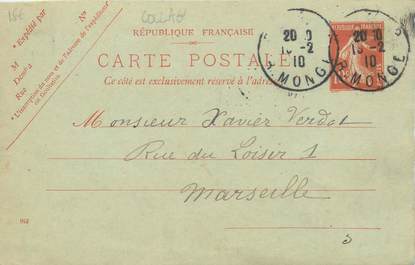 RÉPUBLIQUE FRANÇAISE
CARTE POSTALE
Ce côté est exclusivement réservé à l'adresse
Expédié par
M
Demt à
Rue
No
L'inscription du nom et de l'adresse de l'expéditeur
est facultative
MONGE
10
10
Monsieur Xavier Verdot
Rue du Loisir 1
Marseille